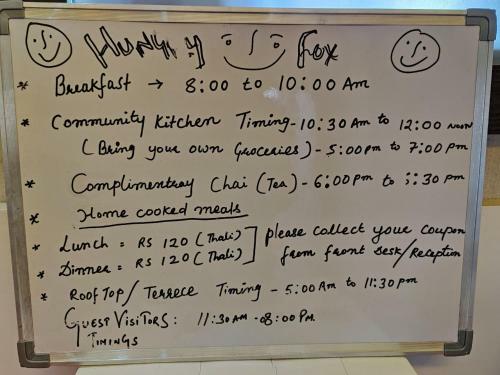 Hungry Fox
* Breakfast → 8:00 to 10:00 Am
* Community Kitchen Timing - 10:30 Am to 12:00 NOON
(Bring your own Groceries) - 5:00 pm to 7:00 pm
* Complimentray Chai (Tea) - 6:00 Pm to :30 pm
* Home cooked meals
* Lunch = RS 120 (Thali)
* Dinner = RS 120 (Thali)
] please collect your coupon
from front Desk/Reception
* Roof Top / Terrece Timing - 5:00 Am to 11:30 pm
Guest Visitors: 11:30 AM - 08:00 Pm
Timings